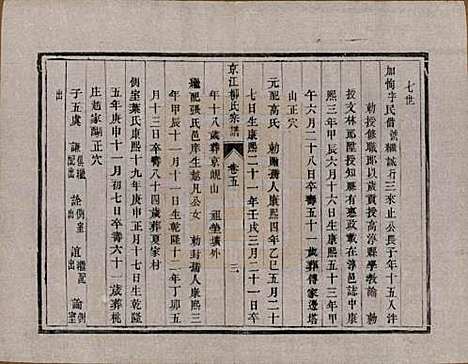 七世
加恂字氏舊號繼誠行三來止公長子年十五入泮
勅授修職郎以歲貢授高淳縣學教諭 勅
授文林郎歷授知縣有惠政載在淳邑誌中康
熙三年六月十六日生康熙五十三年甲
午六月二十八日卒壽五十一歲葬傅家邊塔
山正穴
元配高氏 勅贈孺人康熙四年乙巳五月二十
七日生康熙二十一年壬戌三月二十一日卒
京江柳氏宗譜 卷五 三
年十八歲葬京峴山 祖塋壙外
繼配張氏邑庠生懋凡公女 勅封孺人康熙三
年甲辰十一月一日生乾隆十二年丁卯五
月十三日卒壽八十四歲葬夏家村
側室葉氏康熙十九年庚申正月十七日生乾隆
五年庚申十一月初七日卒壽六十一歲葬桃
莊趙家湖正穴
子五 虞 謙 俱繼配出 詮 側室出 誼 繼配出 論 側室
出